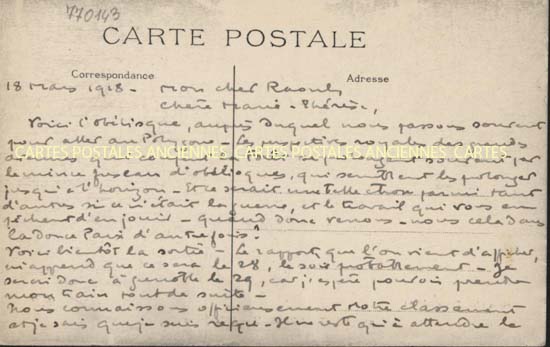 770143
CARTE POSTALE
Correspondance
Adresse
18 Mars 1918 - Mon cher Raoul,
chère Marie-Thérèse,
Voici l'obélisque, auprès duquel nous passons souvent
pour aller au Polygone. Les
CARTES POSTALES ANCIENNES CARTES POSTALES ANCIENNES CARTES
d'obélisques, qui semblent les prolonger
jusqu'à l'horizon - Et ce serait une belle chose parmi tant
d'autres si ce n'était la guerre, et le travail qui vous em
pêchent d'en jouir - quand donc verrons-nous cela dans
la douce Paix d'autrefois?
Voici bientôt la sortie - Le rapport que l'on vient d'afficher,
m'apprend que ce sera le 28, le soir probablement - Je
serai donc à Grenoble le 29, car j'espère pouvoir prendre
mon train tout de suite -
Nous connaissons officieusement notre classement
et je sais que je suis reçu - Il ne reste qu'à attendre le